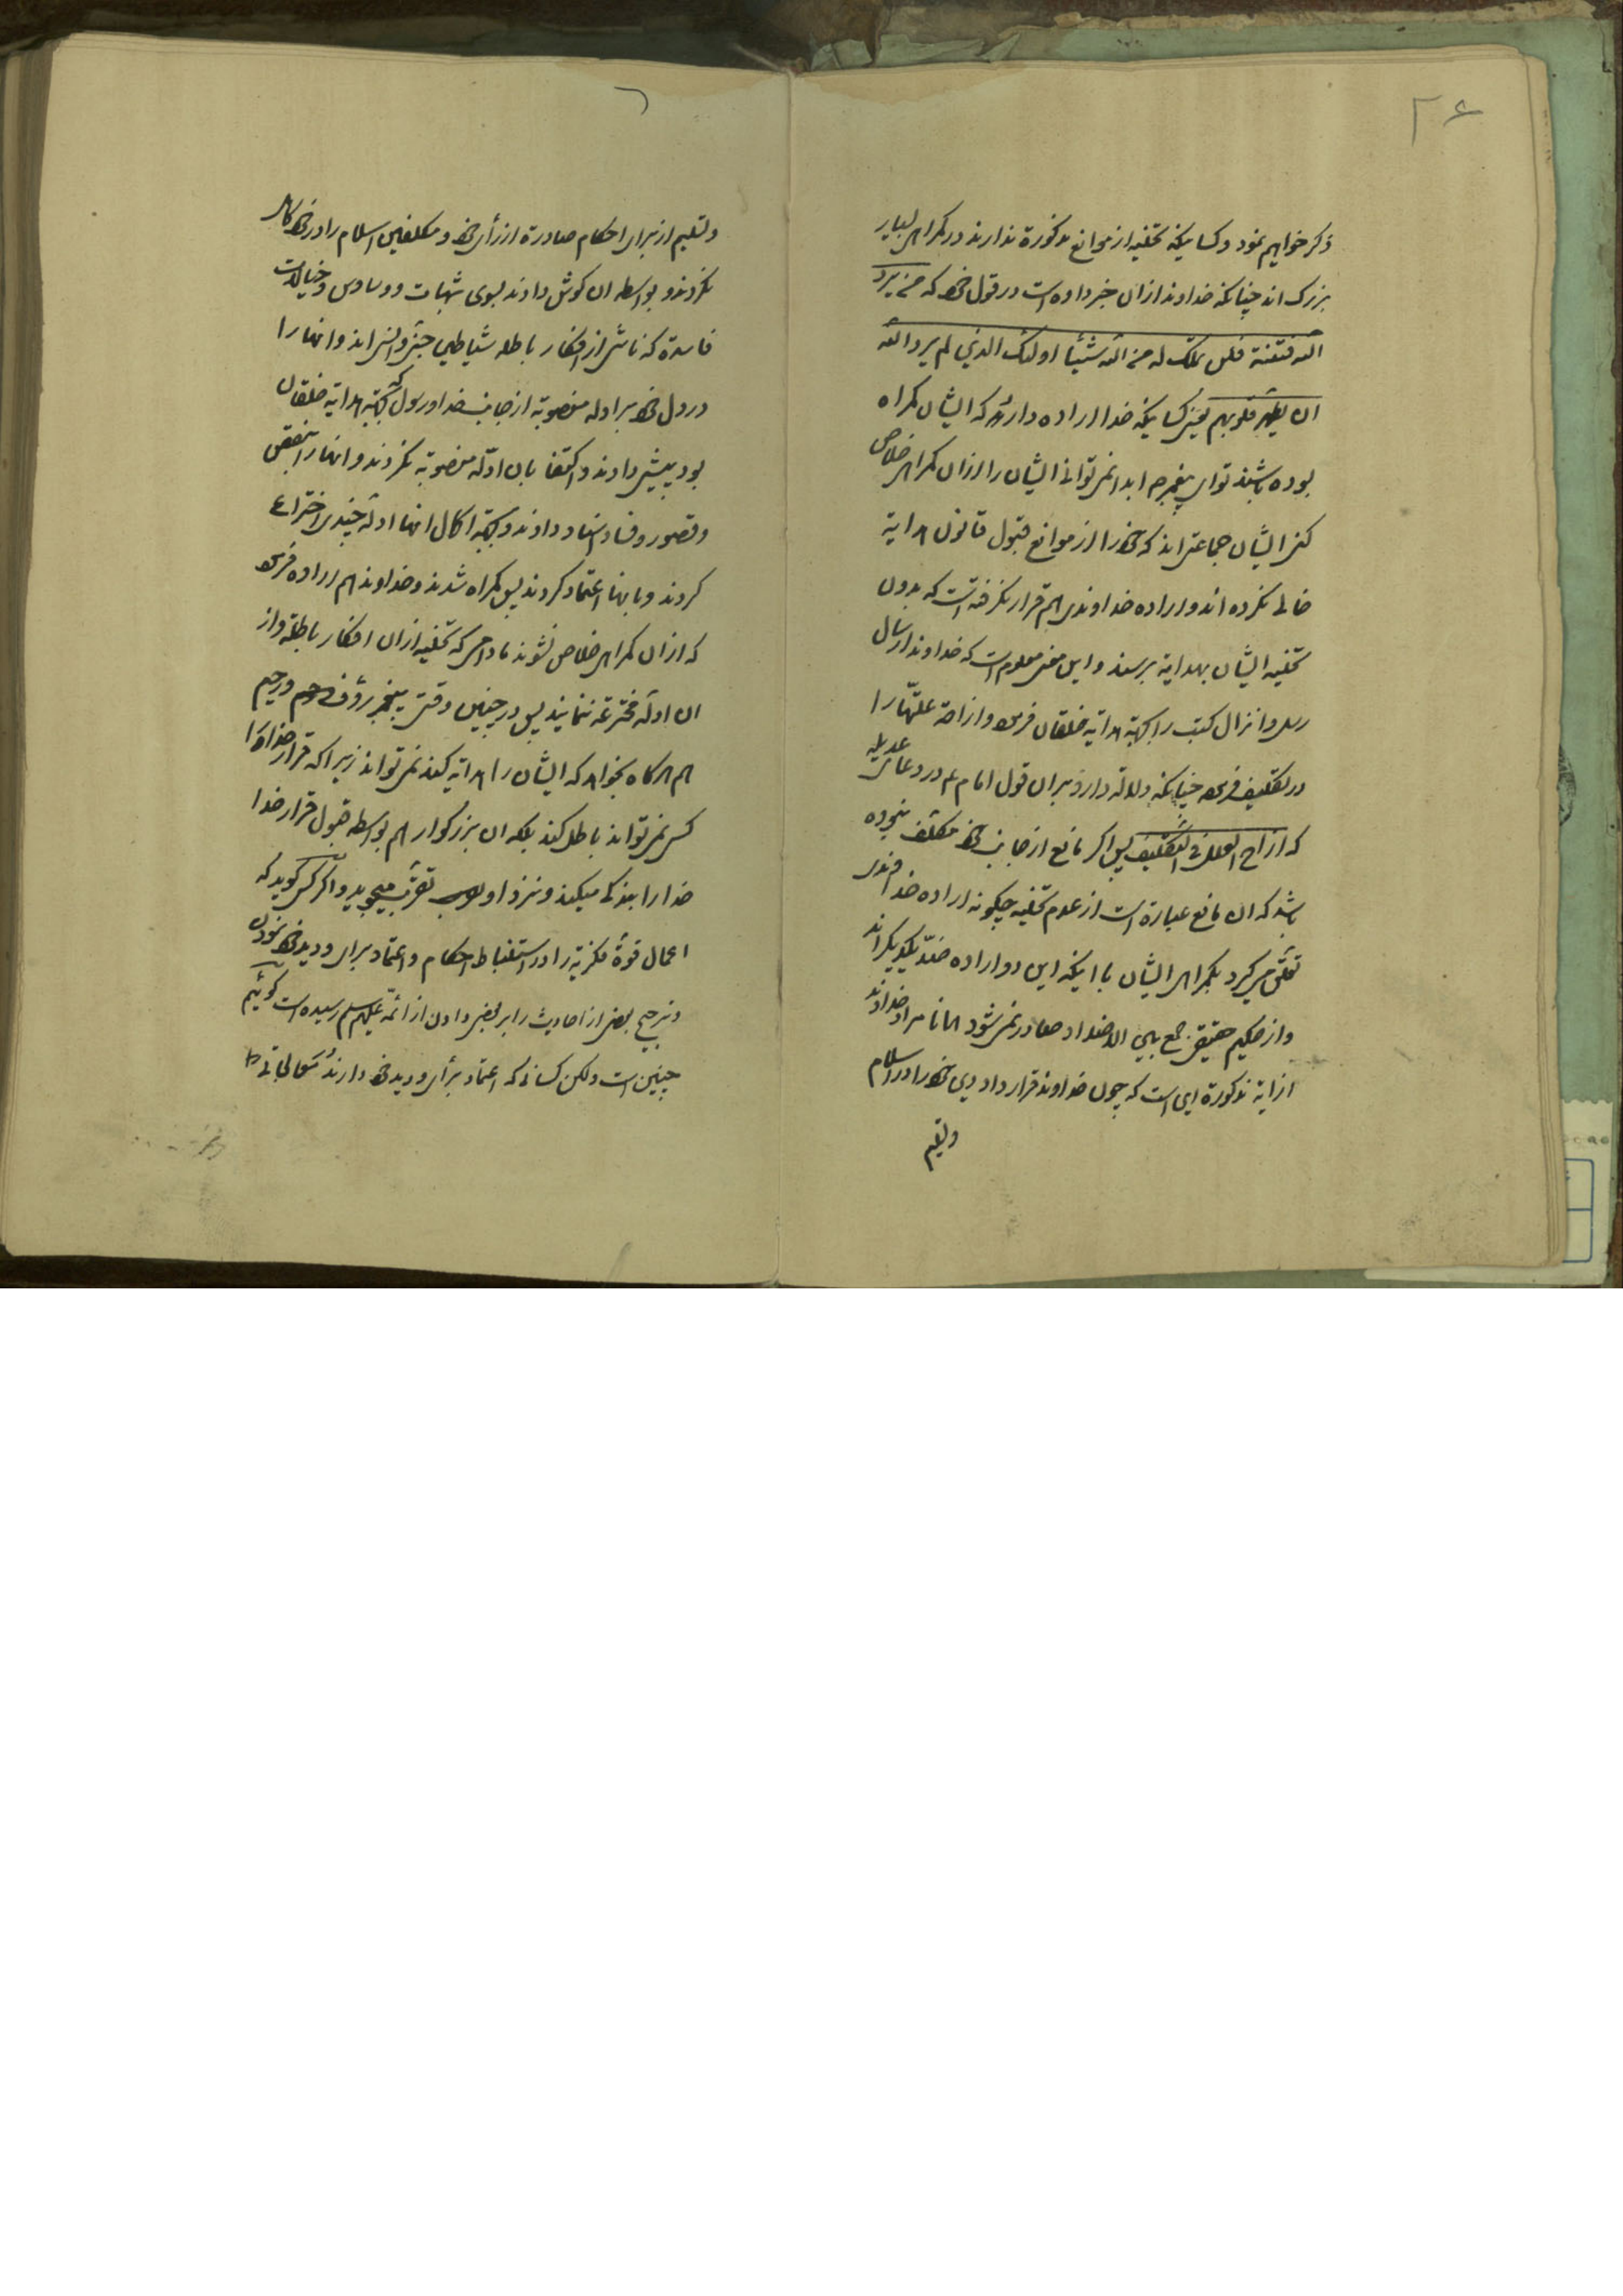 ۲۶
ذکر خواهیم نمود و کسانیکه تخلیه از موانع مذکورة ندارند در کمراهی بسیار
بزرک اند چنانکه خداوند ازان خبر داده است در قول خود که من یرد
الله فتنته فلن تملک له من الله شیئا اولئک الذین لم یرد الله
ان یطهر قلوبهم یعنی کسانیکه خدا اراده دارد که ایشان کمراه
بوده باشند تو ای پیغمبرم ابدا نمی توانی ایشان را ازان کمراهی خلاص
کنی ایشان جماعتی اند که خود را از موانع قبول قانون هدایة
خالی نکرده اند و اراده خداوندی هم قرار نکرفته است که بدون
تخلیه ایشان بهدایة برسند و این معنی معلوم است که خداوند ارسال
رسل و انزال کتب را بجهة هدایة خلقان فرموده و ازاحة علتها را
در تکلیف فرموده چنانکه دلالة دارد بران قول امام ع در دعای عدیله
که ازاح العلل فی التکلیف پس اکر مانع از جانب خود مکلف نبوده
باشد که ان مانع عبارة است از عدم تخلیه چکونه اراده خداوندی
تعلق می کیرد بکمراهی ایشان با اینکه این دو اراده ضد یکدیکراند
و از حکیم حقیقی جمع بین الاضداد صادر نمی شود همانا مراد خداوند
از ایة مذکورة این است که چون خداوند قرار داد دین خود را در اسلام
و تسلیم
و تسلیم از برای احکام صادرة از رأی خود و مکلفین اسلام را در خود کامل
نکردند و بواسطه ان کوش دادند بسوی شبهات و وساوس و خیالات
فاسدة که ناشی از افکار باطله شیاطین جنی و انسی اند و انها را
در دل خود بر ادله منصوبة از جانب خدا و رسول که بجهة هدایة خلقان
بود پیشی دادند و اکتفا بان ادله منصوبة نکردند و انها را بنقص
و قصور و فساد اسناد دادند و بجهة اکمال انها ادله چندی اختراع
کردند و بانها اعتماد کردند پس کمراه شدند و خداوند هم اراده فرموده
که ازان کمراهی خلاص نشوند مادامی که تخلیه ازان افکار باطلة و از
ان ادله مخترعه ننمایند پس در چنین وقتی پیغمبر رؤف و رحیم
هم هرکاه بخواهد که ایشان را هدایة کند نمی تواند زیرا که قرار خدا را
کسی نمی تواند باطل کند بلکه ان بزرکوار هم بواسطه قبول قرار خدا
خدا را بندکی میکند و نزد او تقرب میجوید و اکر کسی کوید که
اعمال قوة فکریة را در استنباط احکام و اعتماد برای و دید خود نمودن
و ترجیح بعضی از احادیث را بر بعضی دادن از ائمة علیهم السلام رسیده است کوئیم
چنین است ولکن کسانی که اعتماد برأی و دید خود دارند